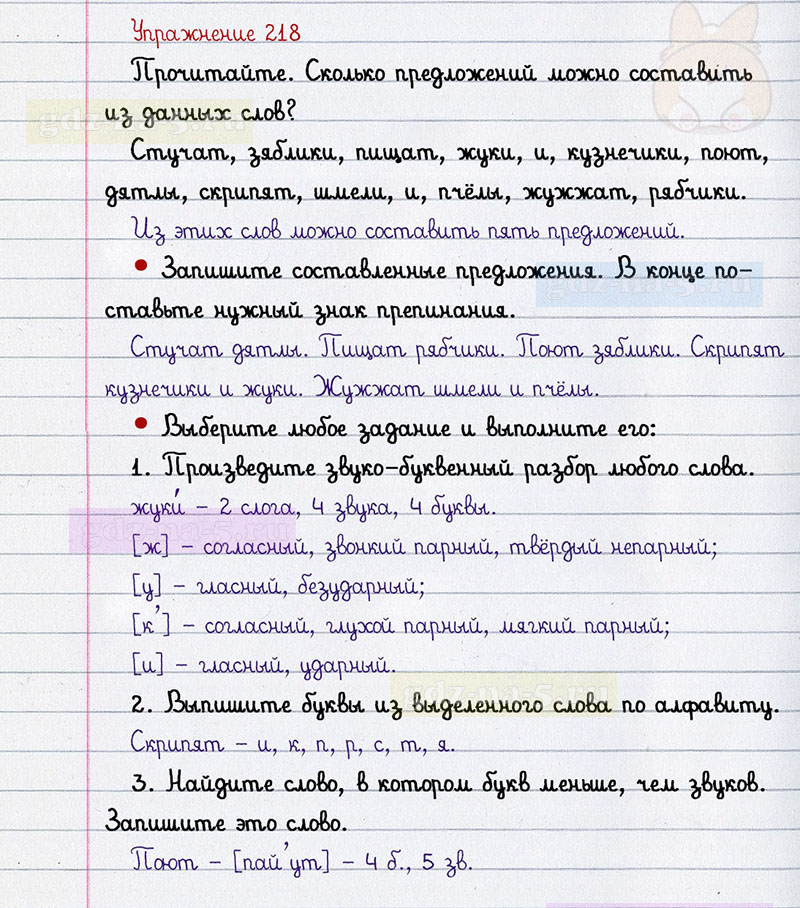 Упражнение 218
Прочитайте. Сколько предложений можно составить
из данных слов?
gdz-na-5.ru
Стучат, зяблики, пищат, жуки, и, кузнечики, поют,
дятлы, скрипят, шмели, и, пчёлы, жужжат, рябчики.
Из этих слов можно составить пять предложений.
• Запишите составленные предложения. В конце по-
gdz-na-5.ru
ставьте нужный знак препинания.
Стучат дятлы. Пищат рябчики. Поют зяблики. Скрипят
кузнечики и жуки. Жужжат шмели и пчёлы.
• Выберите любое задание и выполните его:
1. Произведите звуко-буквенный разбор любого слова.
жуки́ – 2 слога, 4 звука, 4 буквы.
gdz-na-5.ru
[ж] – согласный, звонкий парный, твёрдый непарный;
[у] – гласный, безударный;
[к’] – согласный, глухой парный, мягкий парный;
[и] – гласный, ударный.
gdz-na-5.ru
2. Выпишите буквы из выделенного слова по алфавиту.
Скрипят – и, к, п, р, с, т, я.
3. Найдите слово, в котором букв меньше, чем звуков.
Запишите это слово.
Поют – [пай’ут] – 4 б., 5 зв.